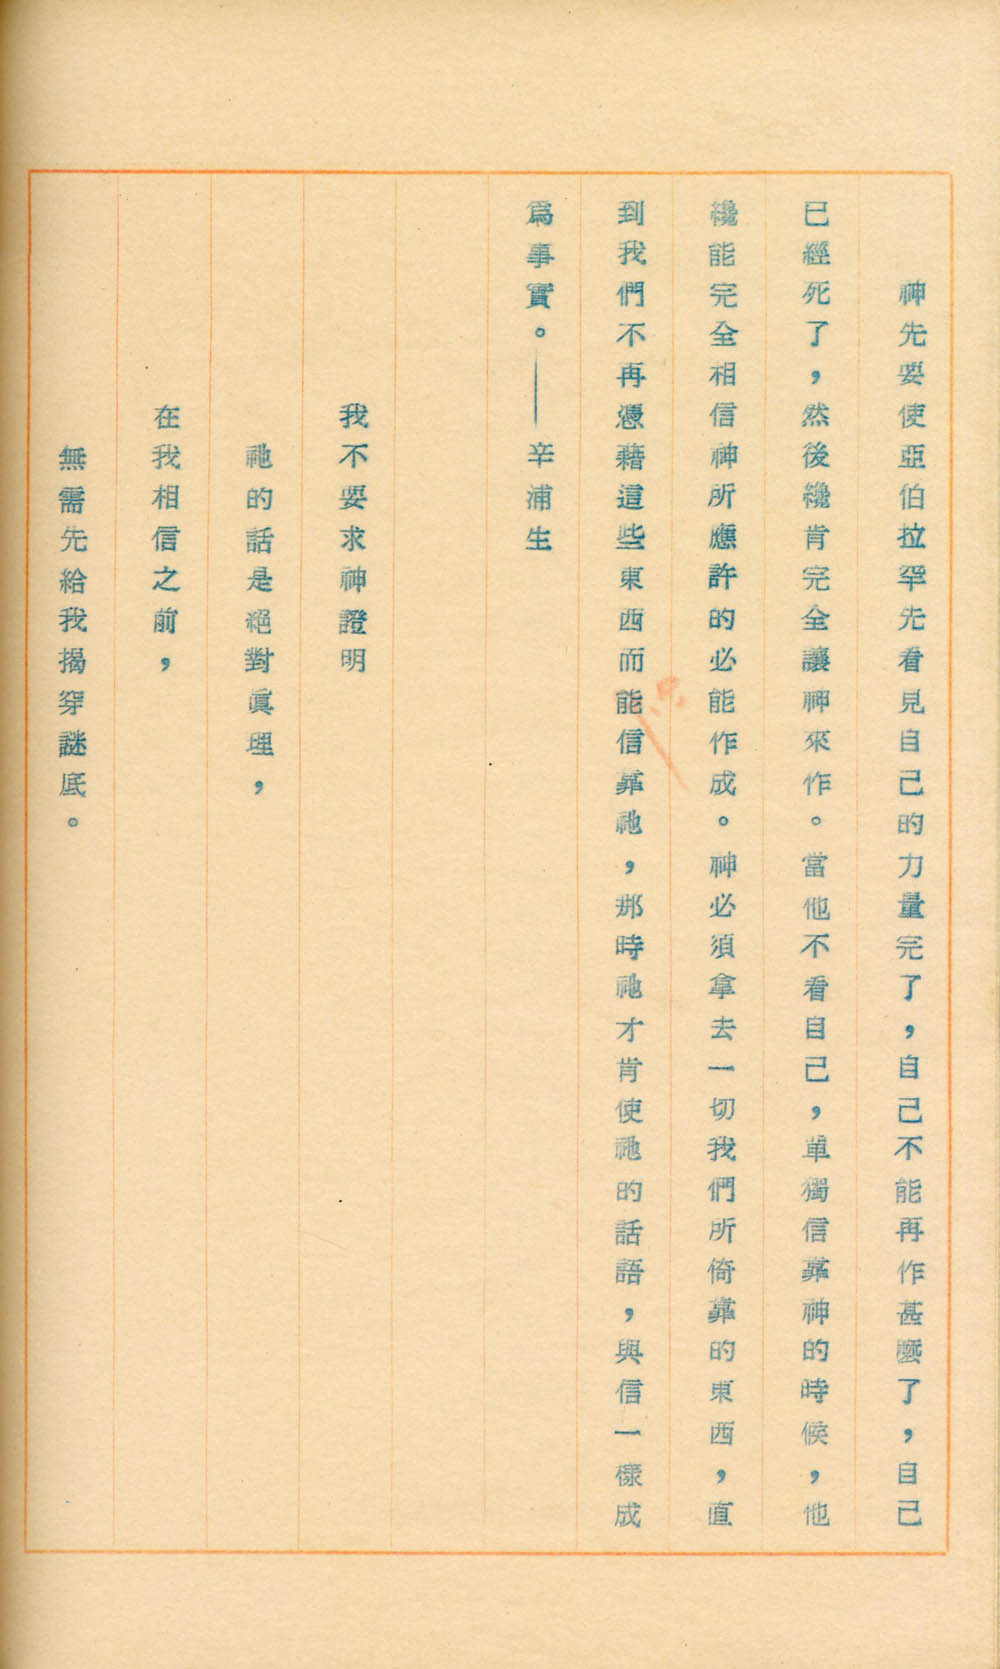 神先要使亞伯拉罕先看見自己的力量完了，自己不能再作甚麼了，自己
已經死了，然後纔肯完全讓神來作。當他不看自己，單獨信靠神的時候，他
纔能完全相信神所應許的必能作成。神必須拿去一切我們所倚靠的東西，直
到我們不再憑藉這些東西而能信靠祂，那時祂才肯使祂的話語，與信一樣成
爲事實。——辛浦生
我不要求神證明
祂的話是絕對眞理，
在我相信之前，
無需先給我揭穿謎底。